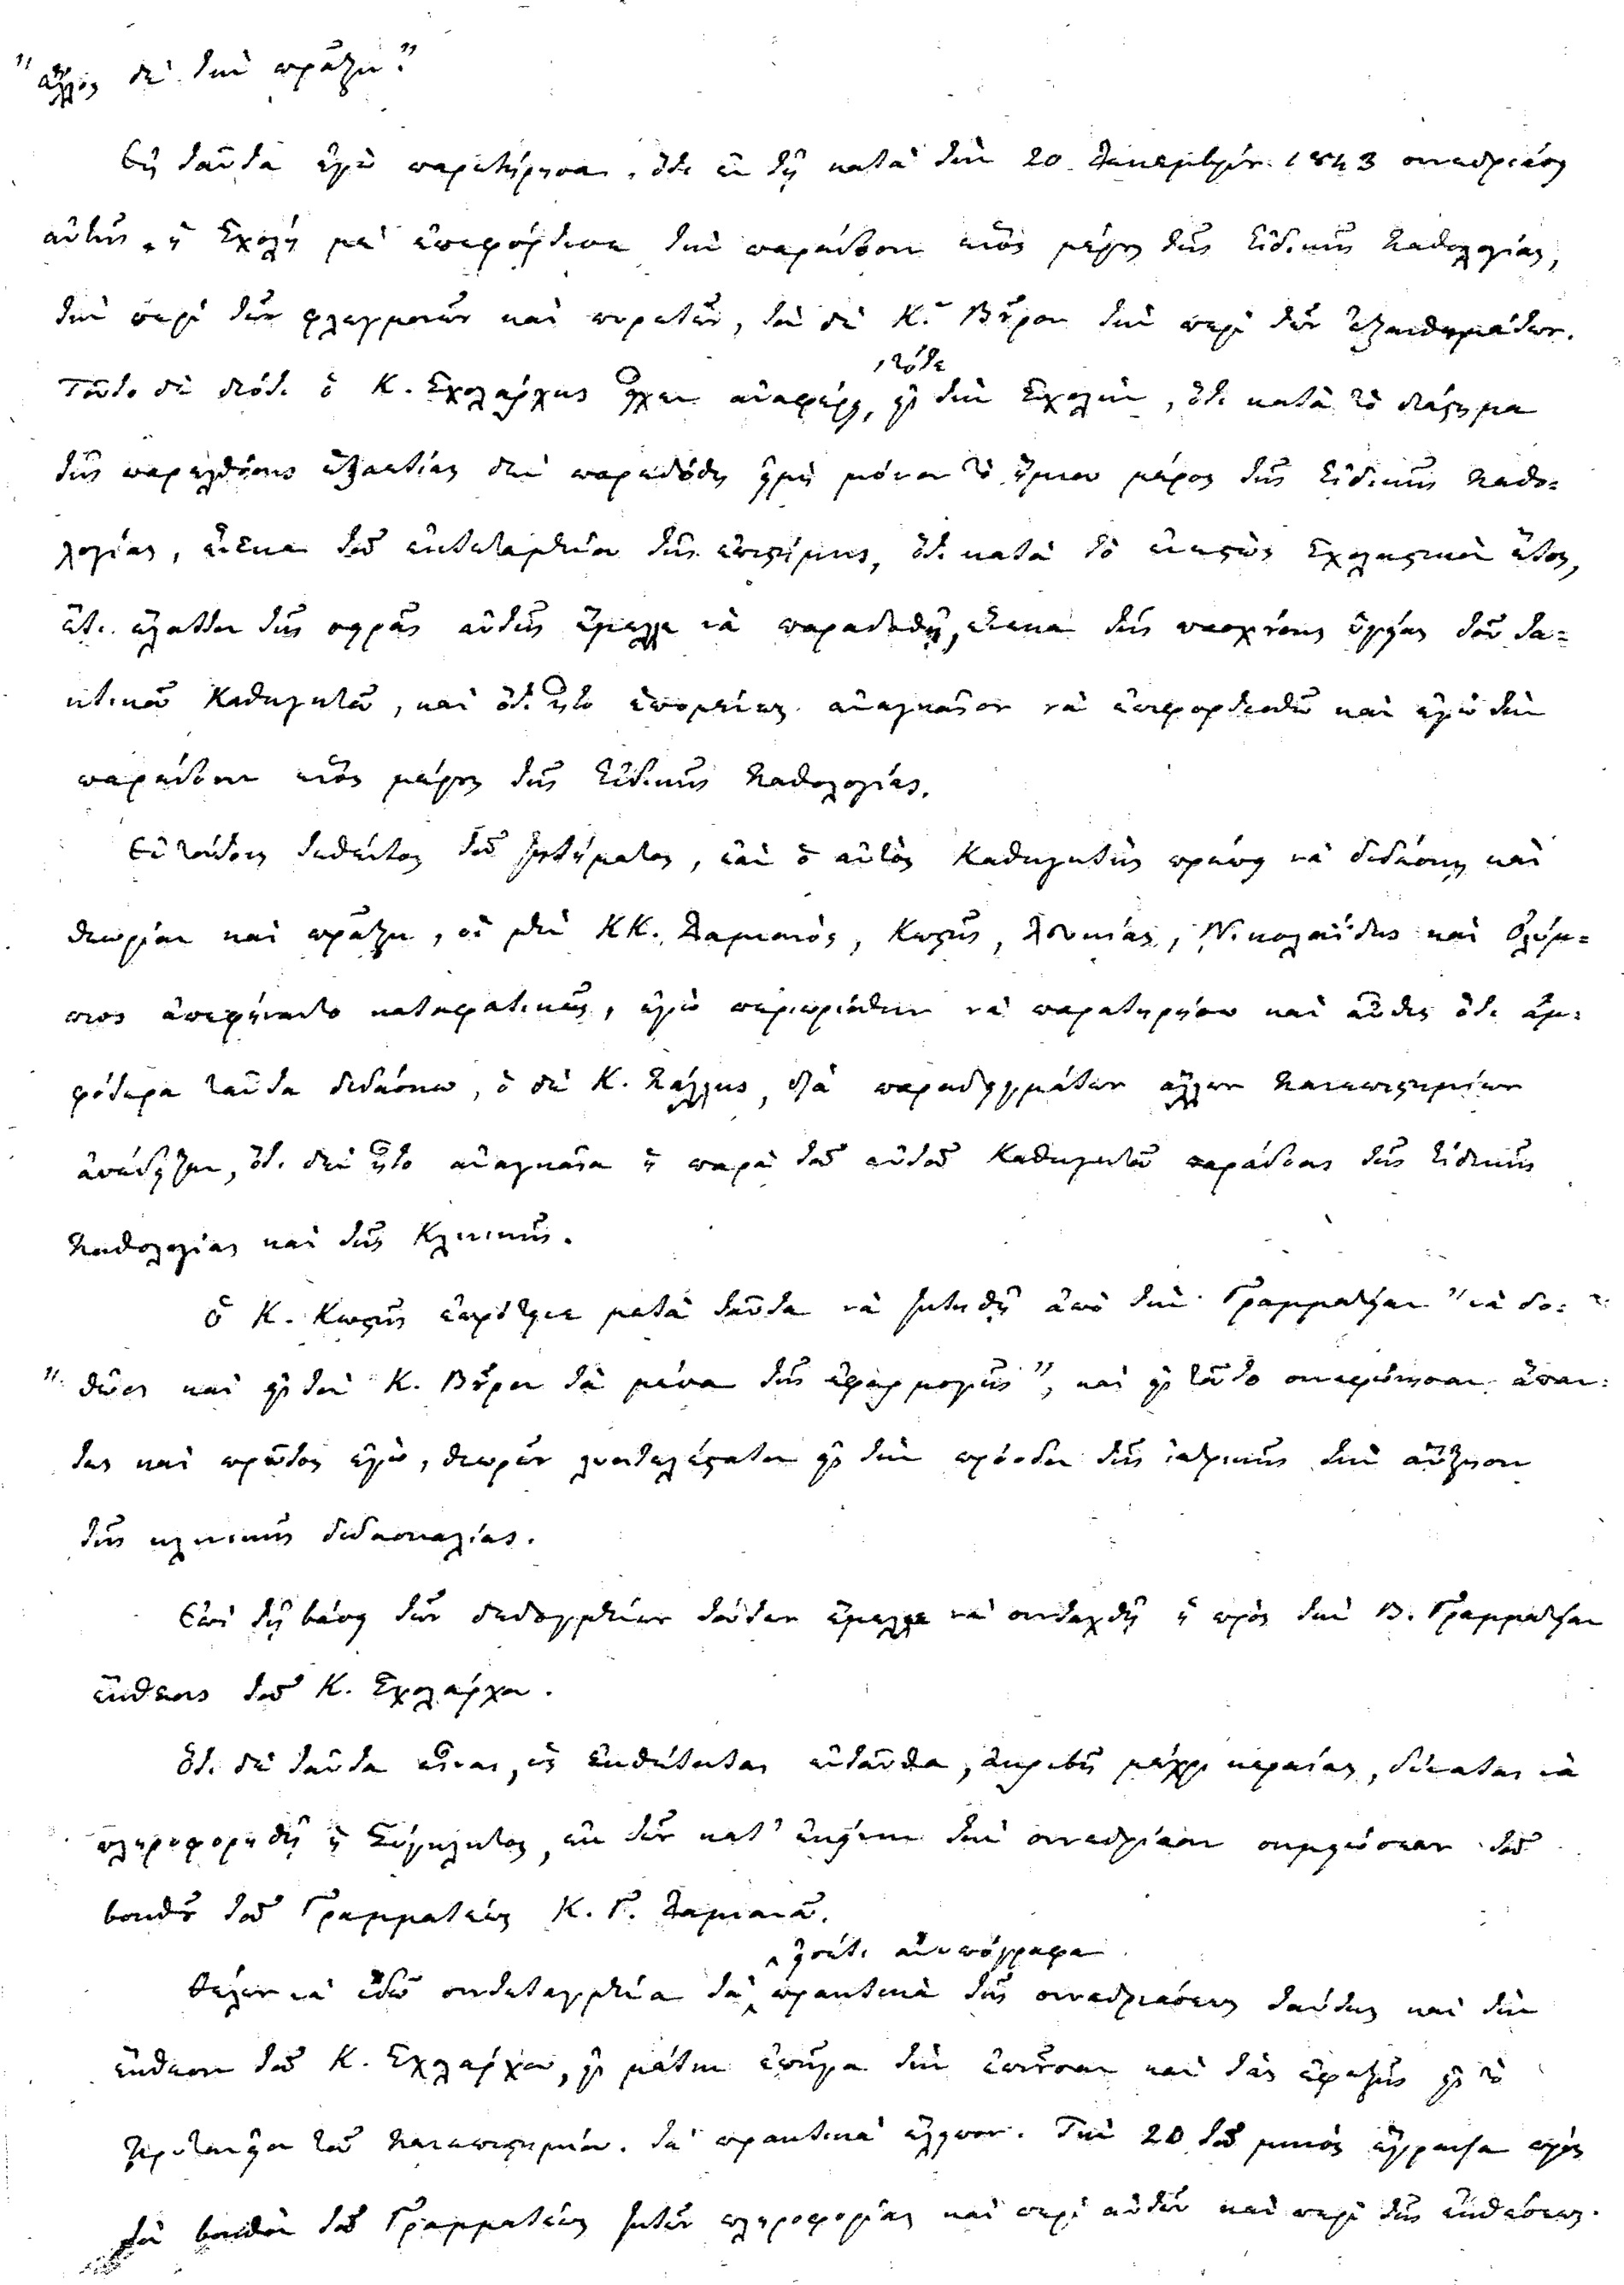 "ἄλλος δὲ τὴν πρᾶξιν."
Εἰς ταῦτα ἐγὼ παρετήρησα, ὅτι ἐν τῇ κατὰ τὴν 20 Δεκεμβρίου 1843 συνεδριάσει
αὐτῆς, ἡ Σχολὴ μὲ ἐπεφόρτισε τὴν παράδοσιν ἑνὸς μέρους τῆς Εἰδικῆς Παθολογίας,
τὴν περὶ τῶν φλεγμονῶν καὶ πυρετῶν, τὸν δὲ Κ. Βοῦρον τὴν περὶ τῶν ἐξανθημάτων.
Τοῦτο δὲ διότι ὁ Κ. Σχολάρχης εἶχεν ἀναφέρει, τότε εἰς τὴν Σχολὴν, ὅτι κατὰ τὸ διάστημα
τῆς παρελθούσης ἑξαετίας δὲν παρεδόθη εἰμὴ μόνον τὸ ἥμισυ μέρος τῆς Εἰδικῆς Παθο=
λογίας, ἕνεκα τοῦ ἐκτεταμένου τῆς ἐπιστήμης, ὅτι κατὰ τὸ ἐνεστὼς Σχολαστικὸν ἔτος,
ἔτι ἔλαττον τῆς σειρᾶς αὐτῆς ἔμελλε νὰ παραδοθῇ, ἕνεκα τῆς πασχούσης ὑγείας τοῦ τα=
κτικοῦ Καθηγητοῦ, καὶ ὅτι ἦτο ἑπομένως ἀναγκαῖον νὰ ἐπιφορτισθῶ καὶ ἐγὼ τὴν
παράδοσιν ἑνὸς μέρους τῆς Εἰδικῆς Παθολογίας.
Ἐν τούτοις τεθέντος τοῦ ζητήματος, ἐὰν ὁ αὐτὸς Καθηγητὴς πρέπει νὰ διδάσκῃ καὶ
θεωρίαν καὶ πρᾶξιν, οἱ μὲν ΚΚ. Δαμιανός, Κωστῆς, Λευκίας, Νικολαΐδης καὶ Ὀλύμ=
πιος ἀπεφήναντο καταφατικῶς, ἐγὼ περιωρίσθην νὰ παρατηρήσω καὶ αὖθις ὅτι ἀμ=
φότερα ταῦτα διδάσκω, ὁ δὲ Κ. Πάλλης, διὰ παραδειγμάτων ἄλλων Πανεπιστημίων
ἀπέδειξεν, ὅτι δὲν ἦτο ἀναγκαία ἡ παρὰ τοῦ αὐτοῦ Καθηγητοῦ παράδοσις τῆς Εἰδικῆς
Παθολογίας καὶ τῆς Κλινικῆς.
Ὁ Κ. Κωστῆς ἐπρότεινε μετὰ ταῦτα νὰ ζητηθῇ ἀπὸ τὴν Γραμματείαν "νὰ δο=
"θῶσι καὶ εἰς τὸν Κ. Βοῦρον τὰ μέσα τῆς ἐφαρμογῆς", καὶ εἰς τοῦτο συνεφώνησαν ἅπαν=
τες καὶ πρῶτος ἐγὼ, θεωρῶν λυσιτελέστατον εἰς τὴν πρόοδον τῆς ἰατρικῆς τὴν αὔξησιν
τῆς κλινικῆς διδασκαλίας.
Ἐπὶ τῇ βάσει τῶν δεδογμένων τούτων ἔμελλε νὰ συνταχθῇ ἡ πρὸς τὴν Β. Γραμματείαν
ἔκθεσις τοῦ Κ. Σχολάρχου.
Ὅτι δὲ ταῦτα εἶναι, ὡς ἐκθέτεται ἐνταῦθα, ἀκριβῆ μέχρι κεραίας, δύναται νὰ
πληροφορηθῇ ἡ Σύγκλητος, ἐκ τῶν κατ' ἐκείνην τὴν συνεδρίασιν σημειώσεων τοῦ
βοηθοῦ τοῦ Γραμματέως Κ. Γ. Δαμιανοῦ.
Θέλων νὰ ἰδῶ συντεταγμένα τὰ εἰσέτι ἀνυπόγραφα πρακτικὰ τῆς συνεδριάσεως ταύτης καὶ τὴν
ἔκθεσιν τοῦ Κ. Σχολάρχου, εἰς μάτην ἐπῆγα τὴν ἐπιοῦσαν καὶ τὰς ἐφεξῆς εἰς τὸ
Πρυτανεῖον τοῦ Πανεπιστημίου. τὰ πρακτικὰ ἔλειπον. Τὴν 20 τοῦ μηνὸς ἔγραψα πρὸς
τὸν βοηθὸν τοῦ Γραμματέως ζητῶν πληροφορίας καὶ περὶ αὐτῶν καὶ περὶ τῆς ἐκθέσεως.